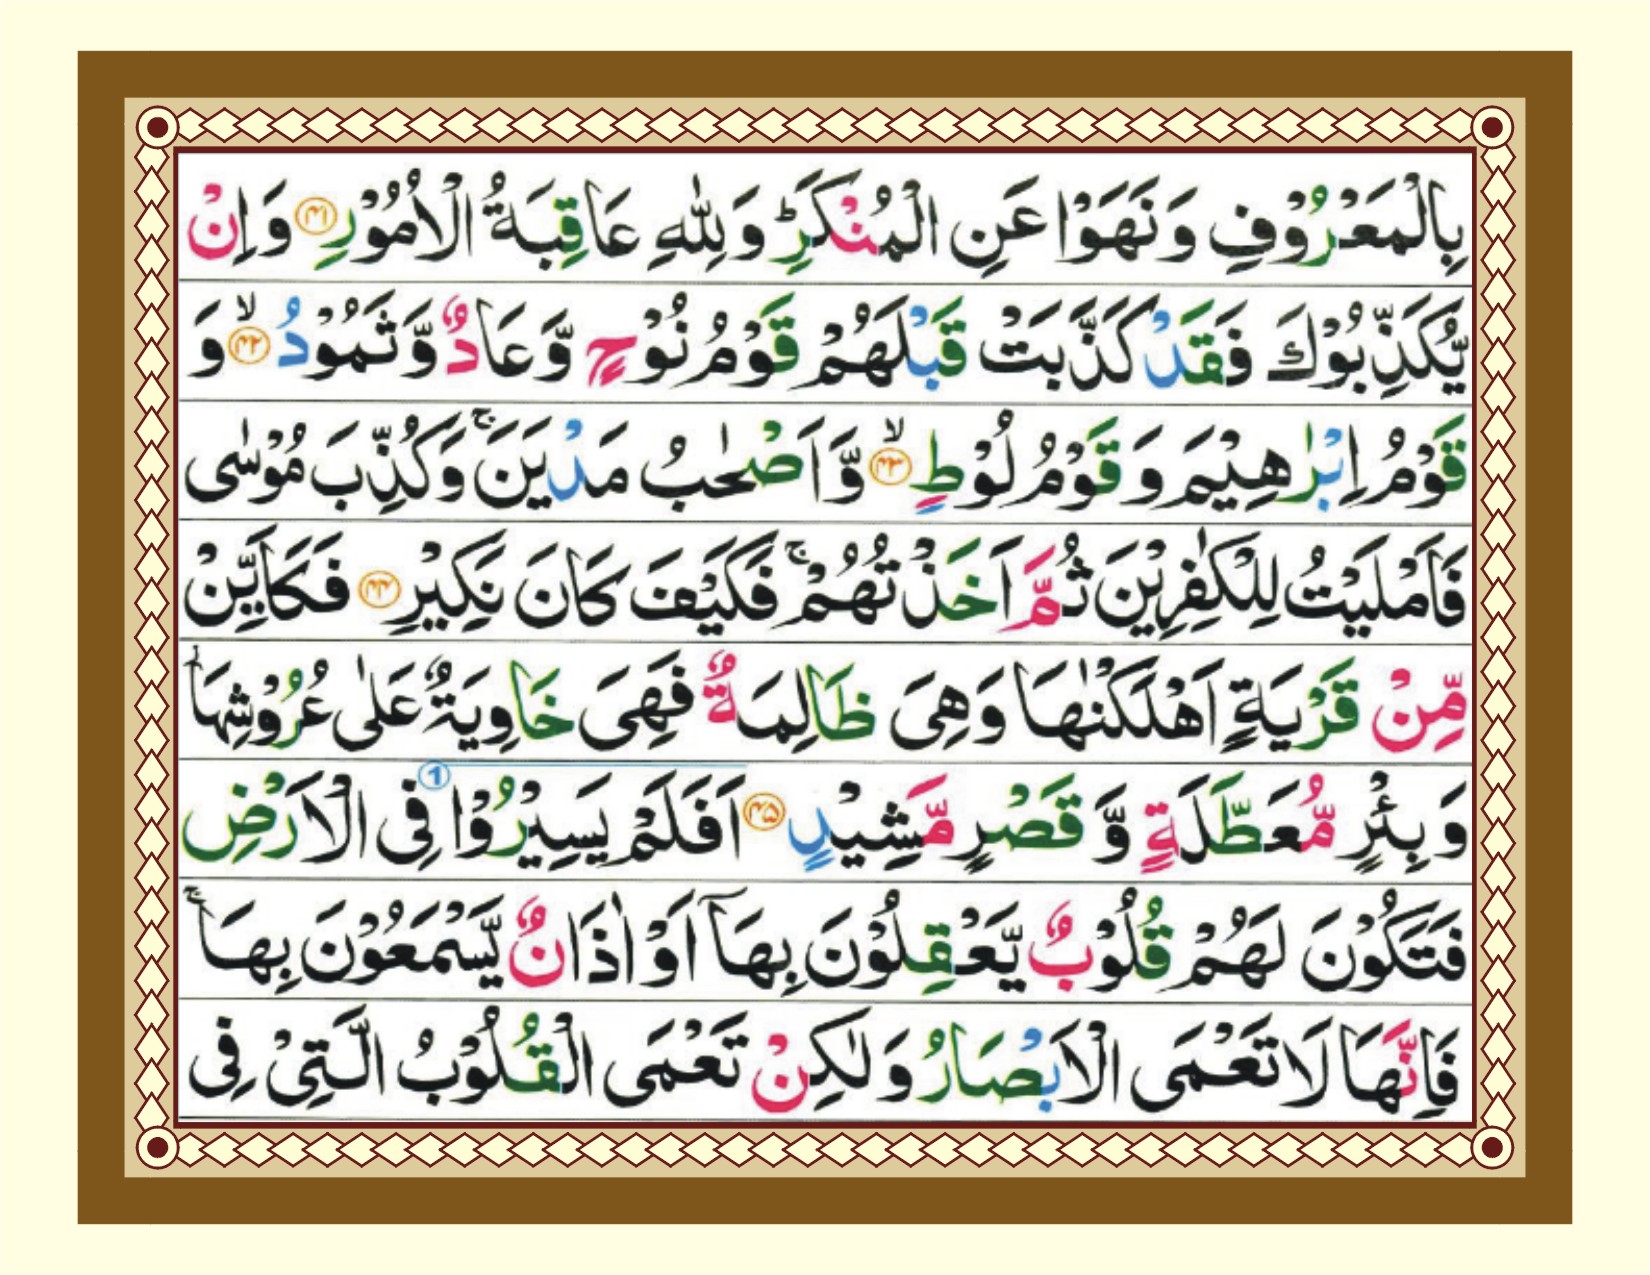 بِالْمَعْرُوْفِ وَنَهَوْا عَنِ الْمُنْكَرِ ؕ وَلِلّٰهِ عَاقِبَةُ الْاُمُوْرِ ﴿۴۱﴾ وَاِنْ
يُّكَذِّبُوْكَ فَقَدْ كَذَّبَتْ قَبْلَهُمْ قَوْمُ نُوْحٍ وَّعَادٌ وَّثَمُوْدُ ۙ﴿۴۲﴾ وَ
قَوْمُ اِبْرٰهِيْمَ وَ قَوْمُ لُوْطٍ ۙ﴿۴۳﴾ وَّاَصْحٰبُ مَدْيَنَ ۚ وَكُذِّبَ مُوْسٰى
فَاَمْلَيْتُ لِلْكٰفِرِيْنَ ثُمَّ اَخَذْتُهُمْ ۚ فَكَيْفَ كَانَ نَكِيْرِ ﴿۴۴﴾ فَكَاَيِّنْ
مِّنْ قَرْيَةٍ اَهْلَكْنٰهَا وَهِىَ ظَالِمَةٌ فَهِىَ خَاوِيَةٌ عَلٰى عُرُوْشِهَا ۫
وَبِئْرٍ مُّعَطَّلَةٍ وَّ قَصْرٍ مَّشِيْدٍ ﴿۴۵﴾ اَفَلَمْ يَسِيْرُوْا 1 فِى الْاَرْضِ
فَتَكُوْنَ لَهُمْ قُلُوْبٌ يَّعْقِلُوْنَ بِهَاۤ اَوْ اٰذَانٌ يَّسْمَعُوْنَ بِهَا ۚ
فَاِنَّهَا لَا تَعْمَى الْاَبْصَارُ وَلٰكِنْ تَعْمَى الْقُلُوْبُ الَّتِىْ فِى